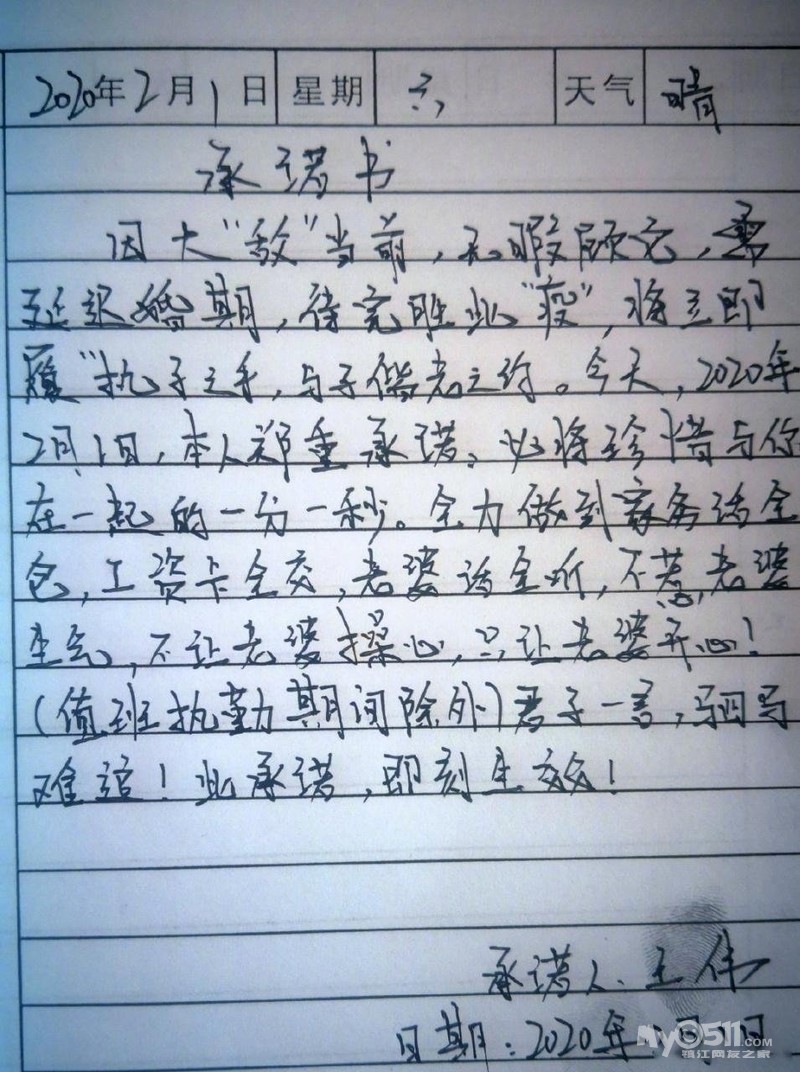 2020年2月1日 星期 六 天气 晴
承诺书
因大“敌”当前,无暇顾它,需
延迟婚期,待完胜此“疫”,将立即
履“执子之手,与子偕老之约。今天,2020年
2月1日,本人郑重承诺,必将珍惜与你
在一起的一分一秒。全力做到家务活全
包,工资卡全交,老婆话全听,不惹老婆
生气,不让老婆操心,只让老婆开心!
(值班执勤期间除外)君子一言,驷马
难追!此承诺,即刻生效!
承诺人:王伟
日期:2020年2月1日
My0511.COM
镇江网友之家